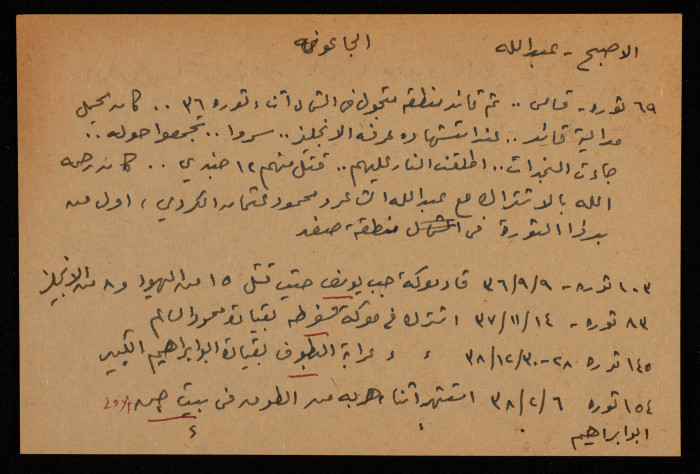 الاصبح - عبدالله الجاعونة
٦٩ ثورة - قسامي .. ثم قائد منطقة متجول في الشمال أثناء ثورة ٣٦ .. كان يحمل
مدالية قائد .. عند استشهاده عرفه الانجليز .. سروا .. تجمعوا حوله ..
جاءت النجدات .. اطلقت النار عليهم .. قتل منهم ١٢ جندي .. كان رحمه
الله بالاشتراك مع عبدالله الشاعر ومحمود عثمان الكردي ، اول من
بدأ الثورة في منطقة صفد
١٠٣ ثورة - ٣٦/٩/٩ قاد معركة جب يوسف حيث قتل ١٥ من اليهود و ٨ من الانجليز
٨٣ ثورة - ٣٧/١١/١٤ اشترك في معركة بقيادة محمود السالم
١٤٥ ثورة ٢٨-٣٨/١٢/٣٠ ، ، عرابة البطوف بقيادة ابو ابراهيم الكبير
١٥٤ ثورة ٣٨/٢/٦ استشهد أثناء هربه من الطوق في بيت جن
ابو ابراهيم